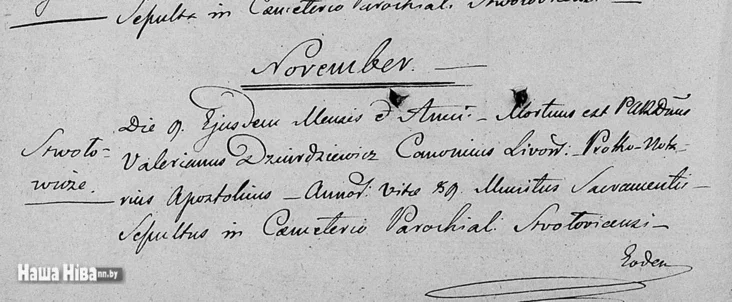 Sepulta in Cæmeterio Parochiali Stwolovicensi. —
November. —
Stwoło-
wicze.
Die 9. Ejusdem Mensis & Anni. — Mortuus est
Valerianus Dziurdziewicz Canonicus Livon: Protho-Nota-
rius Apostolicus — Annor: vitæ 89. Munitus Sacramentis —
Sepultus in Cæmeterio Parochiali Stwolovicensi —
Наша Ніва nn.by